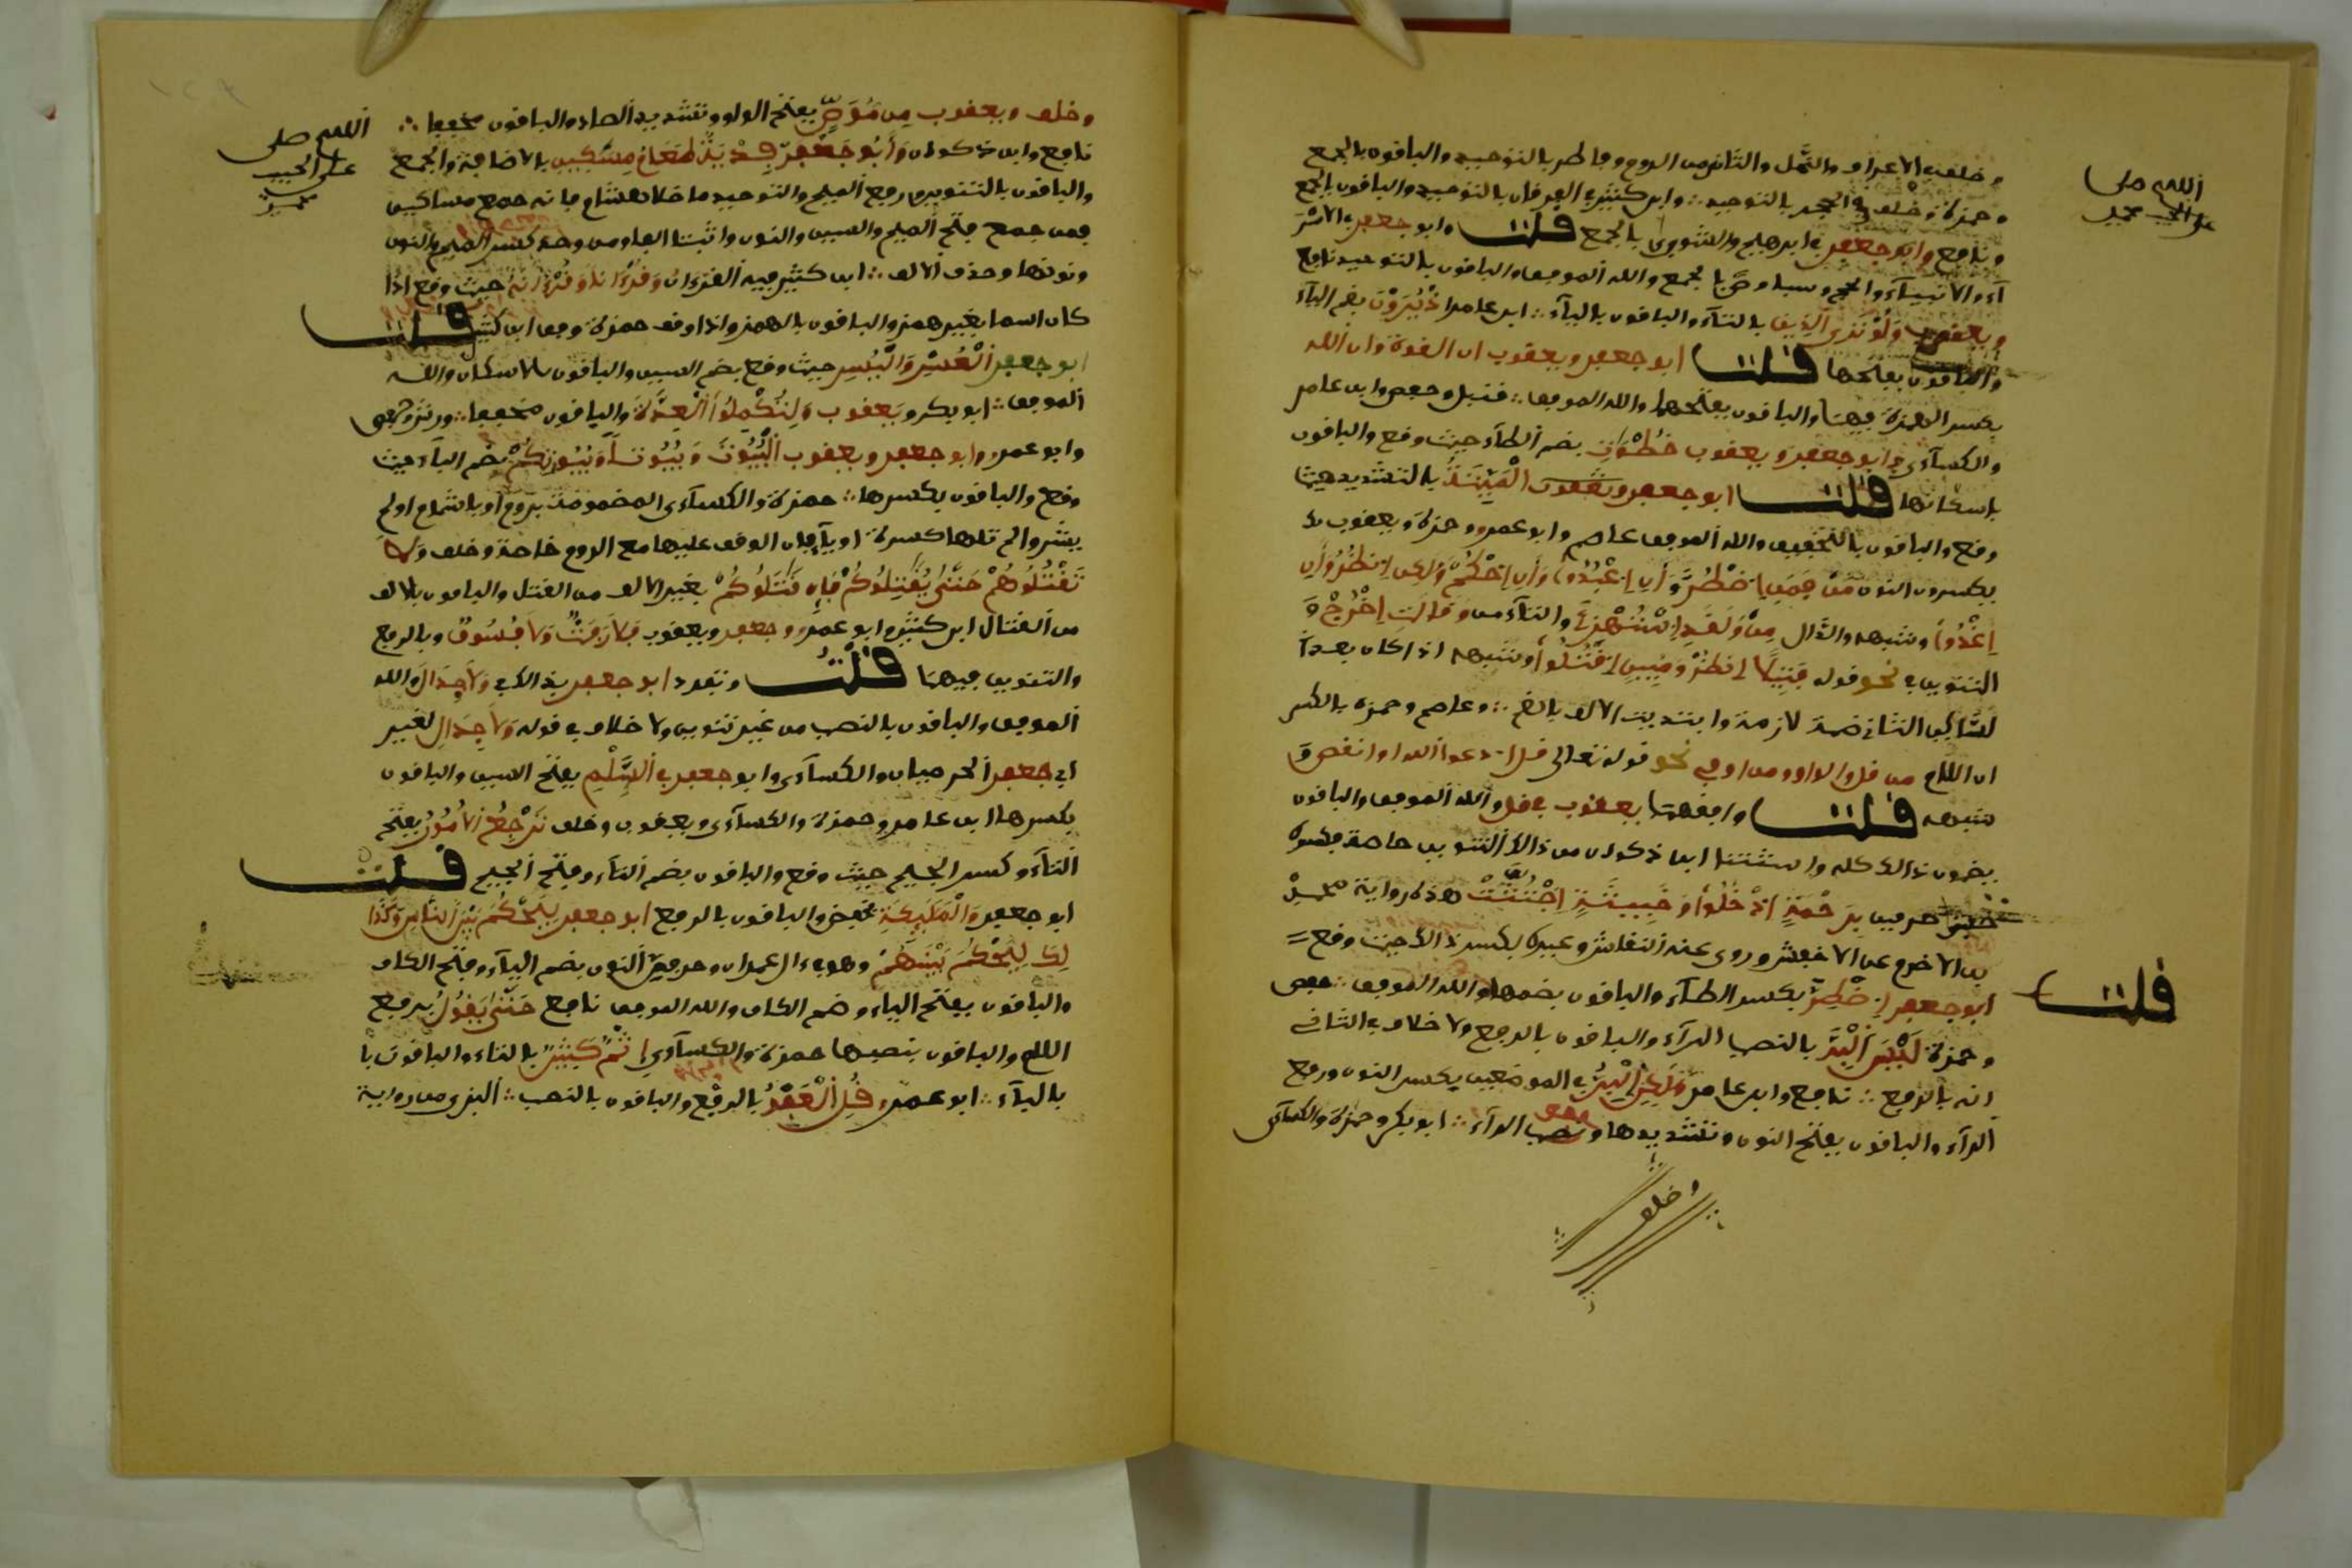 اللهم صل
على الحبيب محمد
وخلف في الاعراف والنمل والثاني من الروم وفاطر بالتوحيد والباقون بالجمع
وحمزة وخلف في الحجر بالتوحيد ∴ وابن كثير في الفرقان بالتوحيد والباقون بالجمع
ونافع وابو جعفر في ابرهيم والشورى بالجمع قلت وابو جعفر في الاسر
آء والانبيآء والحج وسبا وص بالجمع والله الموفق والباقون بالتوحيد نافع
ويعقوب وَلَوْ تَرَى الذِينَ بالتآء والباقون باليآء ∴ ابن عامر اذْ يُرَوْنَ بضم اليآء
والباقون بفتحها قلت ابو جعفر ويعقوب ان القوة وان الله
بكسر الهمزة فيهما والباقون بفتحهما والله الموفق ∴ قنبل وحفص وابن عامر
والكسآءى وابو جعفر ويعقوب خُطُوَاتِ بضم الطآء حيث وقع والباقون
باسكانها قلت ابو جعفر الْمَيِّتَةَ بالتشديد حيث
وقع والباقون بالتخفيف والله الموفق عاصم وابو عمرو وحمزة ويعقوب
يكسرون النون من فَمَنِ اضْطُرَّ وَأَنِ اعْبُدُوا وَأَنِ احْكُمْ وَلَكِنِ انظُرْ وَأَنِ
اغْدُوا وشبهه والدّال مِنْ وَلَقَدِ اسْتُهْزِئَ والتآء من وَقَالَتِ اخْرُجْ وَ
التنوين في نحو قوله فَتِيلًا انظُرْ وَمُبِينٍ اقْتُلُوا وشبهه اذا كان بعد
الساكن الثاني ضمة لازمة وابتديت الالف بالضم ∴ وعاصم وحمزة بالكسر
ان اللام من قل والواو من او في نحو قوله تعالى قل ادعوا الله او انقص و
شبهه قلت وافقهما يعقوب في قل والله الموفق والباقون
يضمون ذالك كله واستثنا ابن ذكوان من ذالك التنوين خاصة فكسره
حرفين بِرَحْمَةٍ ادْخُلُوا وَخَبِيثَةٍ اجْتُثَّتْ هذه رواية محمد
بن الاخرم عن الاخفش وروى عنه النقاش وغيره بكسر ذالك حيث وقع
قلت
ابو جعفر اضْطِرَّ بكسر الطآء والباقون بضمها والله الموفق ∴ حفص
وحمزة لَيْسَ الْبِرَّ بالنصب الرآء والباقون بالرفع ولا خلاف في الثاني
انه بالرفع ∴ نافع وابن عامر وَلَكِنِ الْبِرُّ في الموضعين بكسر النون ورفع
الرآء والباقون بفتح النون وتشديدها ونصب الرآء ∴ ابو بكر وحمزة والكسآئى
وخلف
اللهم صل
على الحبيب
محمد
وخلف ويعقوب مِن مُوَصٍّ بفتح الواو وتشديد الصاد والباقون مخففا ∴
نافع وابن ذكوان وَأَبُو جَعْفَرٍ فِدْيَةُ طَعَامِ مِسَٰكِينَ بالاضافة والجمع
والباقون بالتنوين ورفع الميم والتوحيد ما خلا هشام فانه جمع مساكين
فمن جمع فتح الميم والسين والنون واثبت الفا ومن وحد كسر الميم والنون
ونونها وحذف الالف ∴ ابن كثير فيه القرءانُ وَقُرْءَانًا وَقُرْءَانَهُ حيث وقع اذا
كان اسما بغير همز والباقون بالهمز واذا وقف حمزة وفق ابن كثير قلت
ابو جعفر الْعُسُرَ وَالْيُسُرَ حيث وقع بضم السين والباقون بالاسكان والله
الموفق ∴ ابو بكر ويَعقوب وَلِتُكَمِّلُوا الْعِدَّةَ والباقون مخففا ∴ ورش وحفص
وابو عمرو وابو جعفر ويعقوب الْبُيُوتَ وَبُيُوتًا وَبُيُوتِكُمْ بضم البآء حيث
وقع والباقون بكسرها ∴ حمزة والكسآءى وَلَا
تَقْتُلُوهُمْ حَتَّىٰ يُقَٰتِلُوكُمْ فَإِن قَٰتَلُوكُمْ بغير الالف من القتل والباقون بالالف
من القتال ابن كثير وابو عمرو وجعفر ويعقوب فَلَا رَفَثٌ وَلَا فُسُوقٌ وبالرفع
والتنوين فيهما قلت وتفرد ابو جعفر بذالك في وَلَا جِدَالٌ والله
الموفق والباقون بالنصب من غير تنوين ولا خلاف في قوله وَلَا جِدَالَ لغير
ابى جعفر الحرميان والكسآءى وابو جعفر في السَّلْمِ بفتح السين والباقون
بكسرها ابن عامر وحمزة والكسآءى ويعقوب وخلف تَرْجِعُ الأُمُورُ بفتح
التآء وكسر الجيم حيث وقع والباقون بضم التآء وفتح الجيم قلت
ابو جعفر وَالْمَلَٰئِكَةِ بخفض والباقون بالرفع ابو جعفر لِيُحْكَمَ بَيْنَ النَّاسِ وَكَذَا
لِكَ لِيُحْكَمَ بَيْنَهُمْ وهو في ءال عمران وحرفى النون بضم اليآء وفتح الكاف
والباقون بفتح الياء وضم الكاف والله الموفق نافع حَتَّىٰ يَقُولُ برفع
اللام والباقون بنصبها حمزة والكسآءى إِثْمٌ كَثِيرٌ بالثاء والباقون با
بالبآء ∴ ابو عمرو قُلِ الْعَفْوُ بالرفع والباقون بالنصب ∴ البزى من رواية